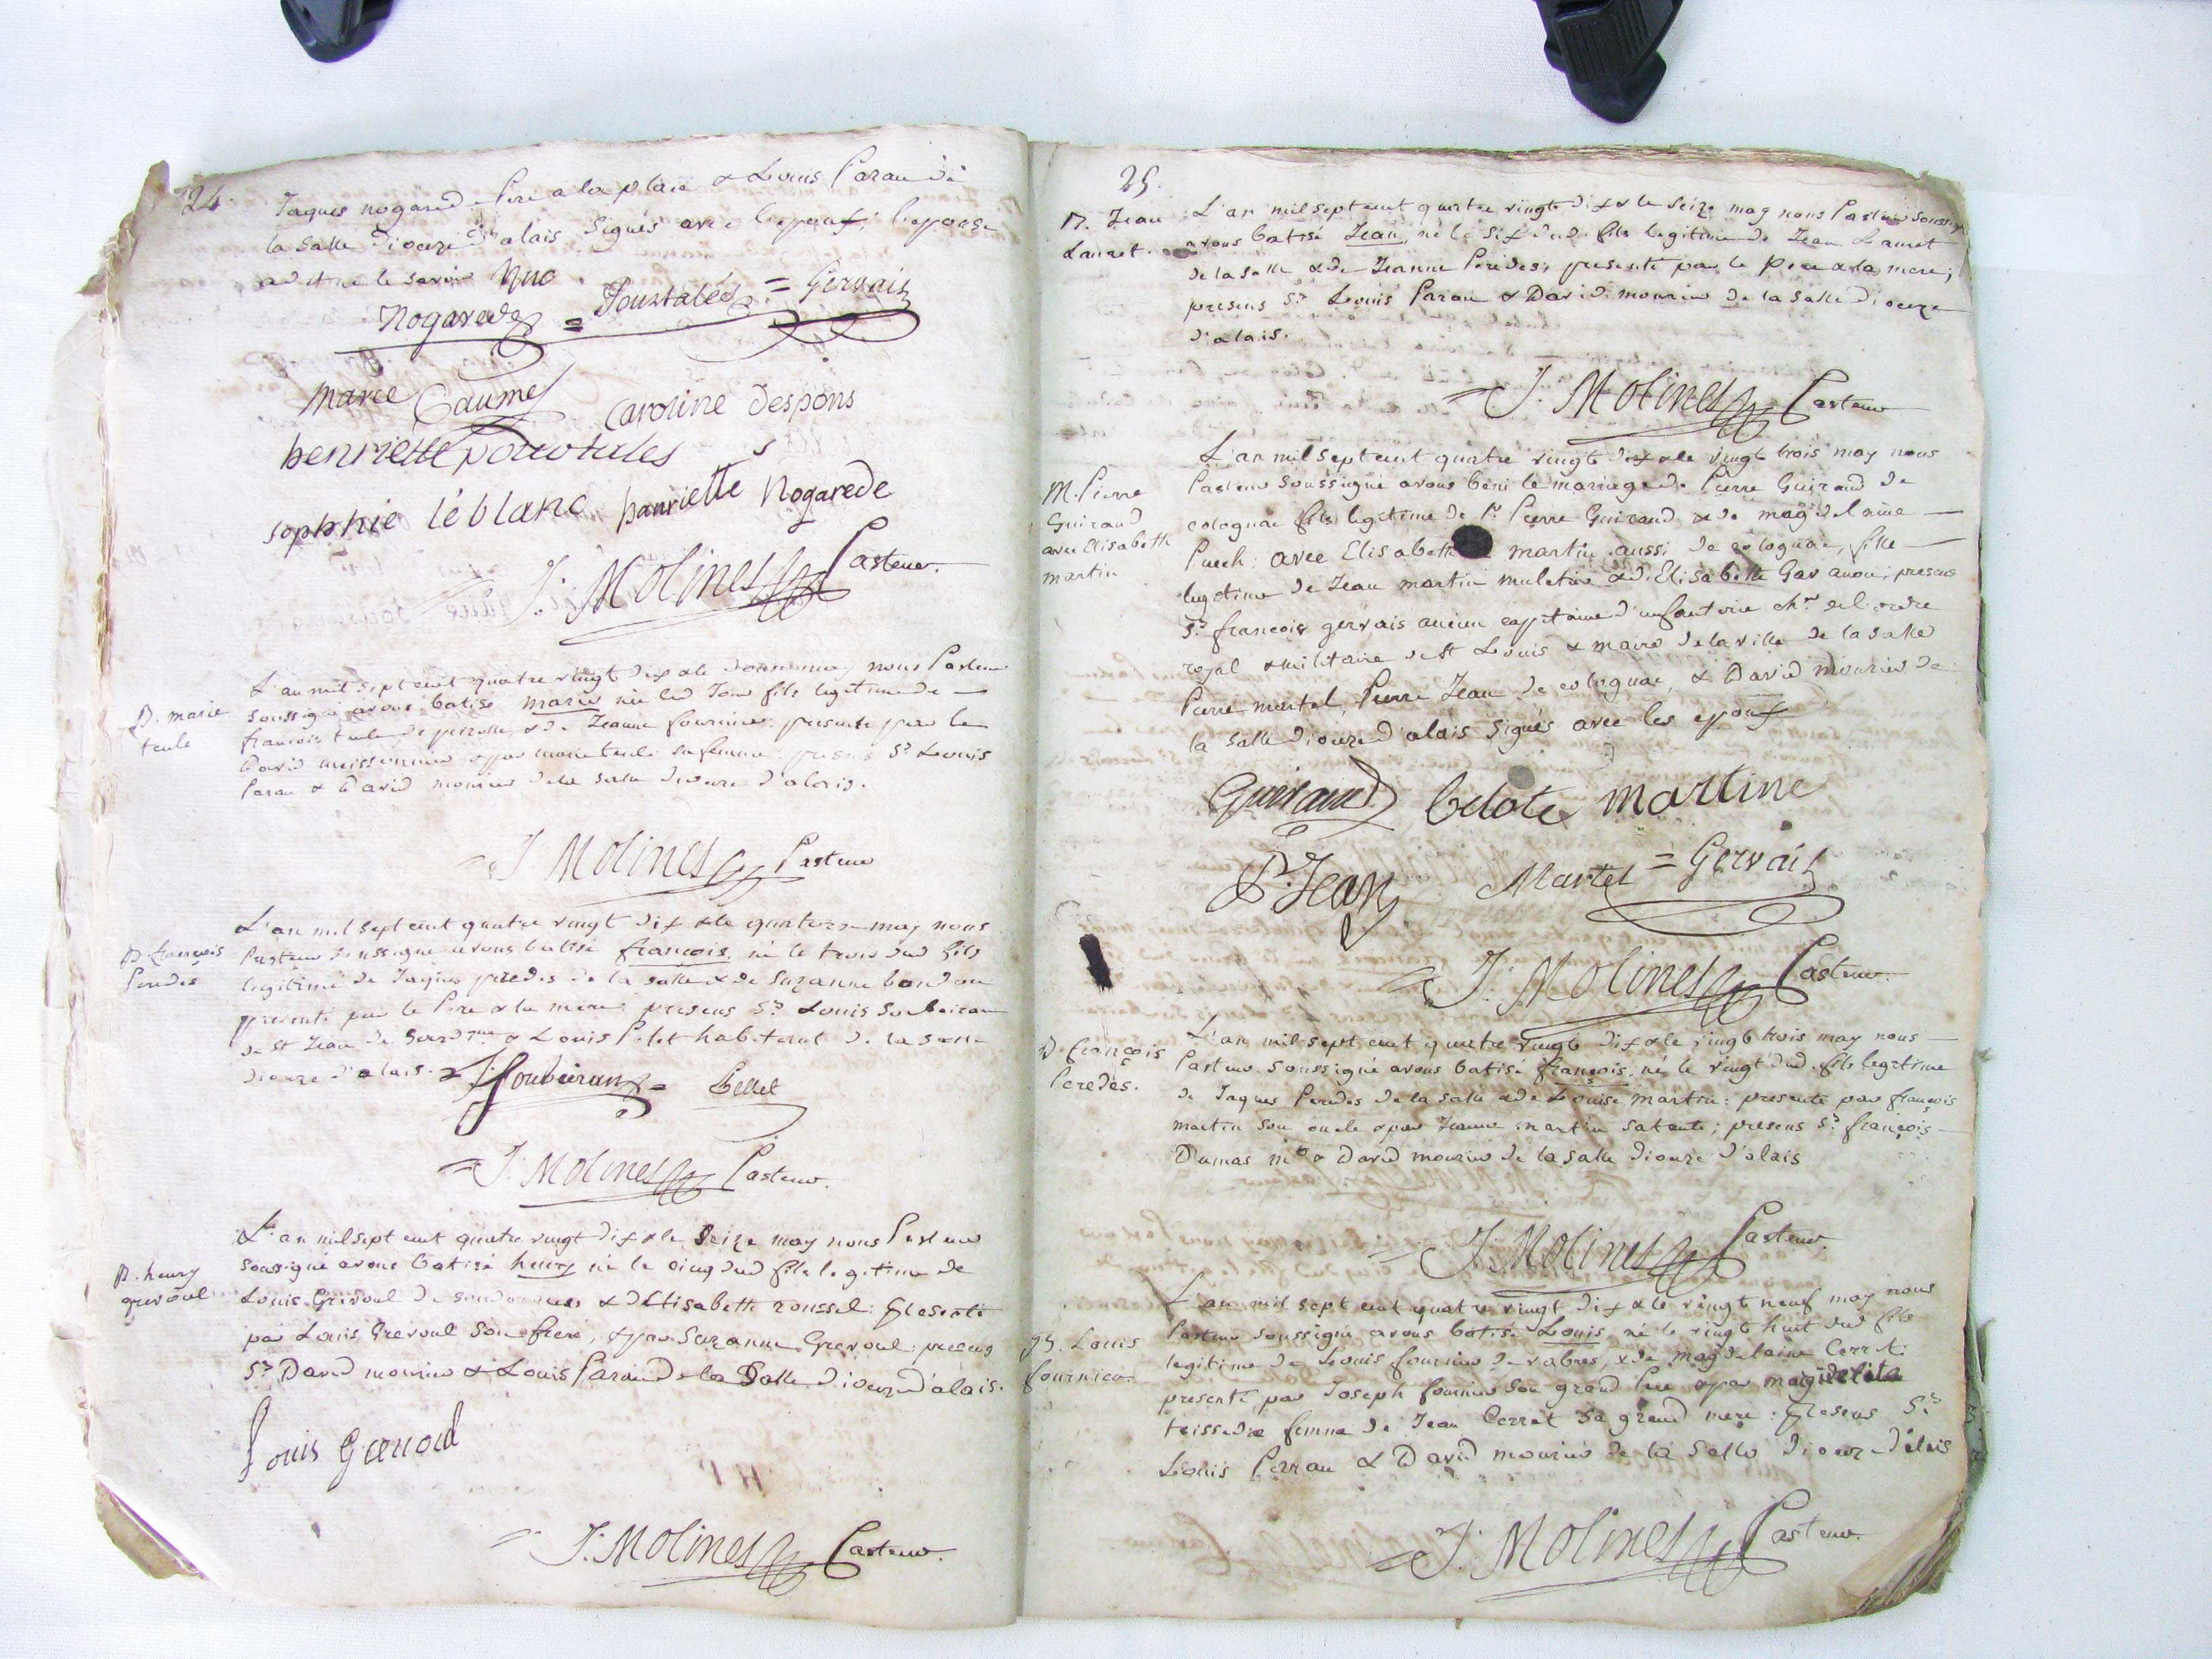 24.
Jaques nogarede Pere a la place & Louis Parau de
la Salle Dioceze d'alais Signés avec l'epoux; l'epouse
a dit ne le savoir Nuc
Nogarede = Poustalès = Gervais
marie Caumel caroline Despons
henriette
sophhie léblanc hanriette Nogarede
= J. Molines Pasteur.
B. marie
teule
L'an mil sept cent quatre vingt dix & le douze may nous Pasteur
soussigné avons batisé marie née led Jour fils legitime de
francois teule de & de Jeanne fournier: presente par le
David meissonnier & par marie teule sa femme; presens Srs Louis
Parau & David mourier de la Salle dioceze d'alais.
= J. Molines Pasteur
B. françois
Peredes
L'an mil sept cent quatre vingt dix & le quatorze may nous
Pasteur soussigné avons batisé francois, né le trois dud fils
legitime de Jaques peredes de la salle & de Suzanne bordou
presenté par le Pere & la mere: presens Srs Louis Soubeiran
de St Jean de Gardque & Louis Pelet habitant de la Salle
dioceze d'alais. = Soubeiran = Pellet
= J. Molines Pasteur.
B. henry
grevoul
L'an mil sept cent quatre vingt dix & le Seize may nous Pasteur
sousigné avons batisé henry né le cinq dud fils legitime de
Louis Grevoul de soudorgues & d'Elisabeth roussel: Presenté
par Louis Grevoul son frere, & par Suzanne Grevoul: presens
Srs David mourier & Louis Parau de la Salle dioceze d'alais.
Louis Grevoul
= J. Molines Pasteur.
25.
B. Jean
Lauret.
L'an mil sept cent quatre vingt dix & le seize may nous Pasteur soussigné
avons batisé Jean, né le six dud. fils legitime de Jean Lauret
de la Salle & de Jeanne Peredes; presenté par le Pere & la mere;
presens Srs Louis Parau & David mourier de la Salle Dioceze
d'alais.
= J. Molines Pasteur
M. Pierre
Guiraud
avec Elisabeth
martin
L'an mil sept cent quatre vingt dix & le vingt trois may nous
Pasteur soussigné avons beni le mariage de Pierre Guiraud de
colognac fils legitime de Sr Pierre Guiraud & de magdelaine
Puech: avec Elisabeth martin aussi de colognac, fille
legitime de Jean martin muletier & d'Elisabeth Gavanon; presens
Srs francois gervais ancien cappitaine d'infanterie chr de l'ordre
royal & militaire de St Louis & maire de la ville de la Salle
Pierre martel, Pierre Jean de colognac, & David mourier de
la Salle dioceze d'alais Signés avec les epoux
Guiraud belote martine
Pr Jean Martel = Gervais
= J. Molines Pasteur.
B. françois
Peredes.
L'an mil sept cent quatre vingt dix & le vingt trois may nous
Pasteur soussigné avons batisé françois, né le vingt dud. fils legitime
de Jaques Peredes de la Salle & de Louise martin: presenté par françois
martin son oncle & par Jeanne martin sa tante; presens Srs françois
Dumas & David mourier de la Salle dioceze d'alais
= J. Molines Pasteur.
B. Louis
fournier.
L'an mil sept cent quatre vingt dix & le vingt neuf may nous
Pasteur soussigné avons batisé Louis, né le vingt huit dud fils
legitime de Louis fournier de vabres, & de magdelaine Cerret:
presenté par Joseph fournier son grand Pere & par
teissedre femme de Jean Cerret sa grand mere: Presens Srs
Louis Parau & David mourier de la Salle dioceze d'alais
= J. Molines Pasteur.